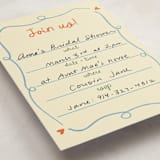 Join us!
Anne's Bridal Shower
what
March 3rd at 2 pm
date + time
at Aunt Mae's house
where
Cousin Jane
RSVP
Jane: 914-327-4312